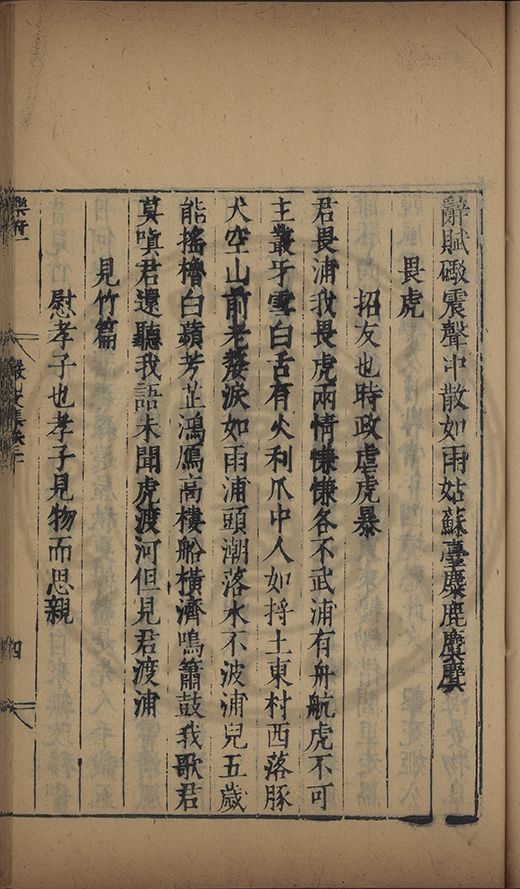 辭賦礮震聲中散如雨姑蘇臺麋鹿麌麌
畏虎
招友也時政虐虎暴
君畏浦我畏虎兩情慊慊各不武浦有舟航虎不可
主叢牙雪白舌有火利爪中人如捋土東村西落豚
犬空山前老嫠淚如雨浦頭潮落水不波浦兒五歲
能搖櫓白蘋芳芷鴻鴈高樓船橫濟鳴簫鼓我歌君
莫嗔君還聽我語未聞虎渡河但見君渡浦
見竹篇
慰孝子也孝子見物而思親
樂府一
四